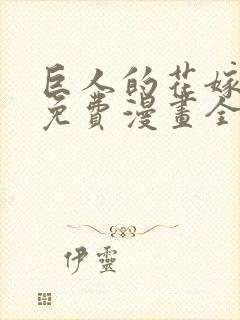 巨人的花嫁
免費漫畫全
伊靈